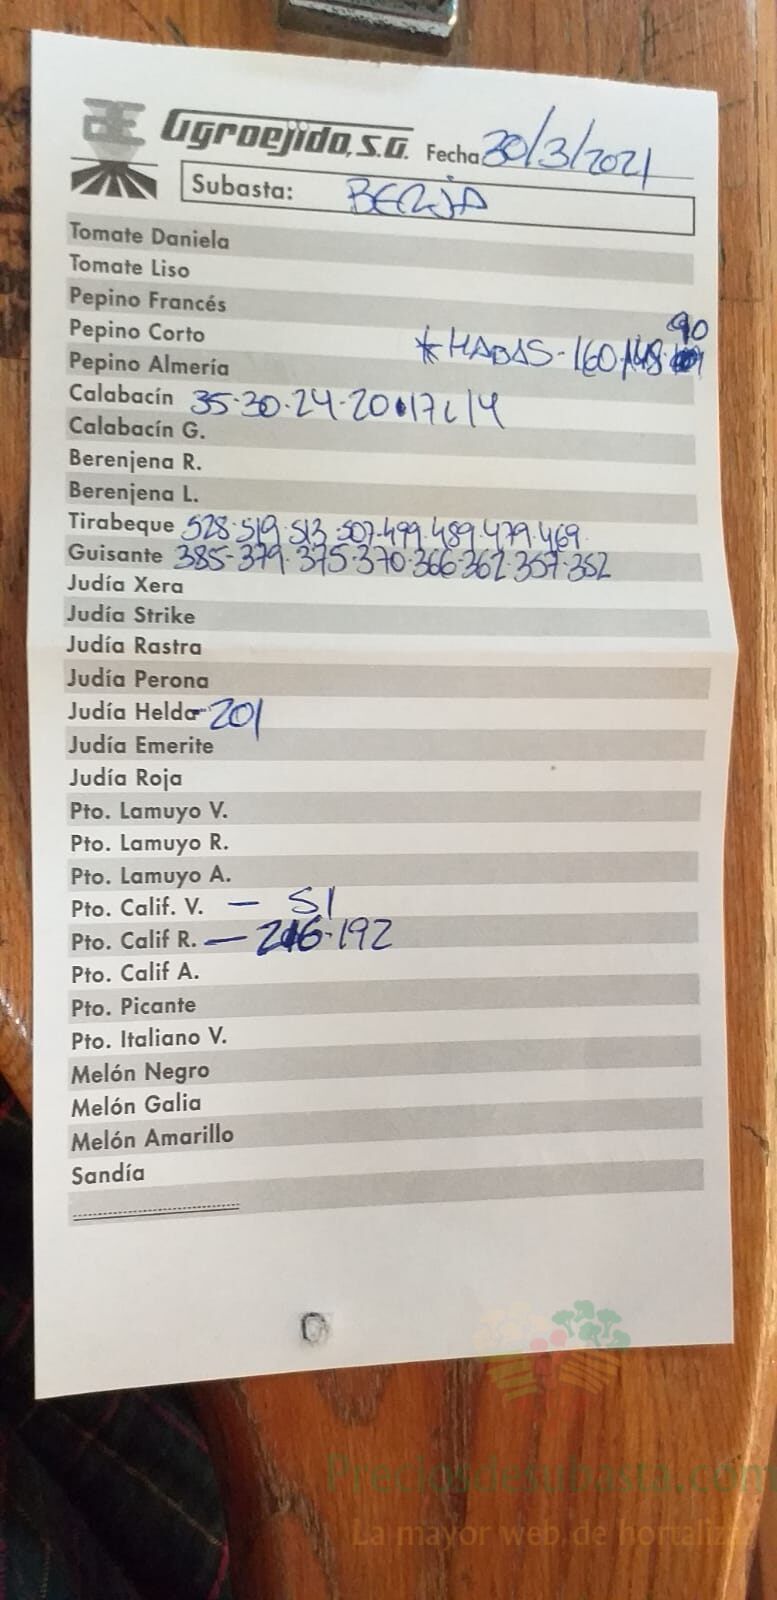 Agroejido, S.A. Fecha 30/3/2021
Subasta: BERJA
Tomate Daniela
Tomate Liso
Pepino Francés
90
Pepino Corto * HABAS - 160.148.
Pepino Almería
Calabacín 35.30.24.20.17 14
Calabacín G.
Berenjena R.
Berenjena L.
Tirabeque 528.519.513.507.499.489.479.469.
Guisante 385-379.375.370.366.362.357.352
Judía Xera
Judía Strike
Judía Rastra
Judía Perona
Judía Helda - 201
Judía Emerite
Judía Roja
Pto. Lamuyo V.
Pto. Lamuyo R.
Pto. Lamuyo A.
Pto. Calif. V. — 51
Pto. Calif R. — 216.192
Pto. Calif A.
Pto. Picante
Pto. Italiano V.
Melón Negro
Melón Galia
Melón Amarillo
Sandía
Preciosdesubasta.com
La mayor web de hortalizas